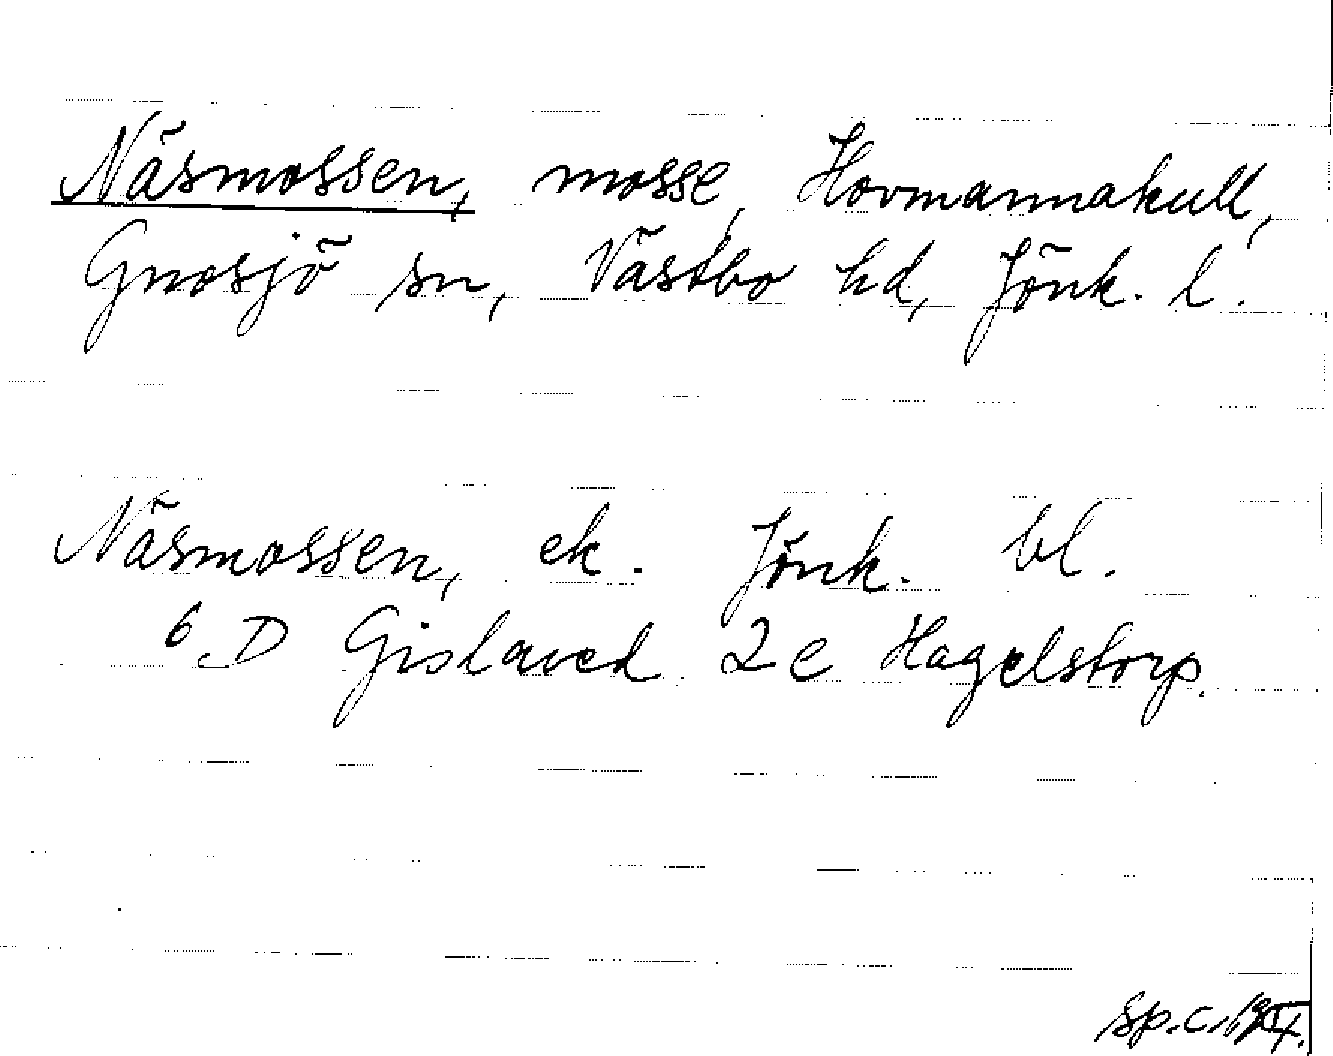 Näsmossen, mosse, Hovmannakull,
Gnosjö sn, Västbo hd, Jönk. l.
Näsmossen, ek. Jönk. bl.
6 D Gislaved 2 e Hagelstorp.
Sp.c.